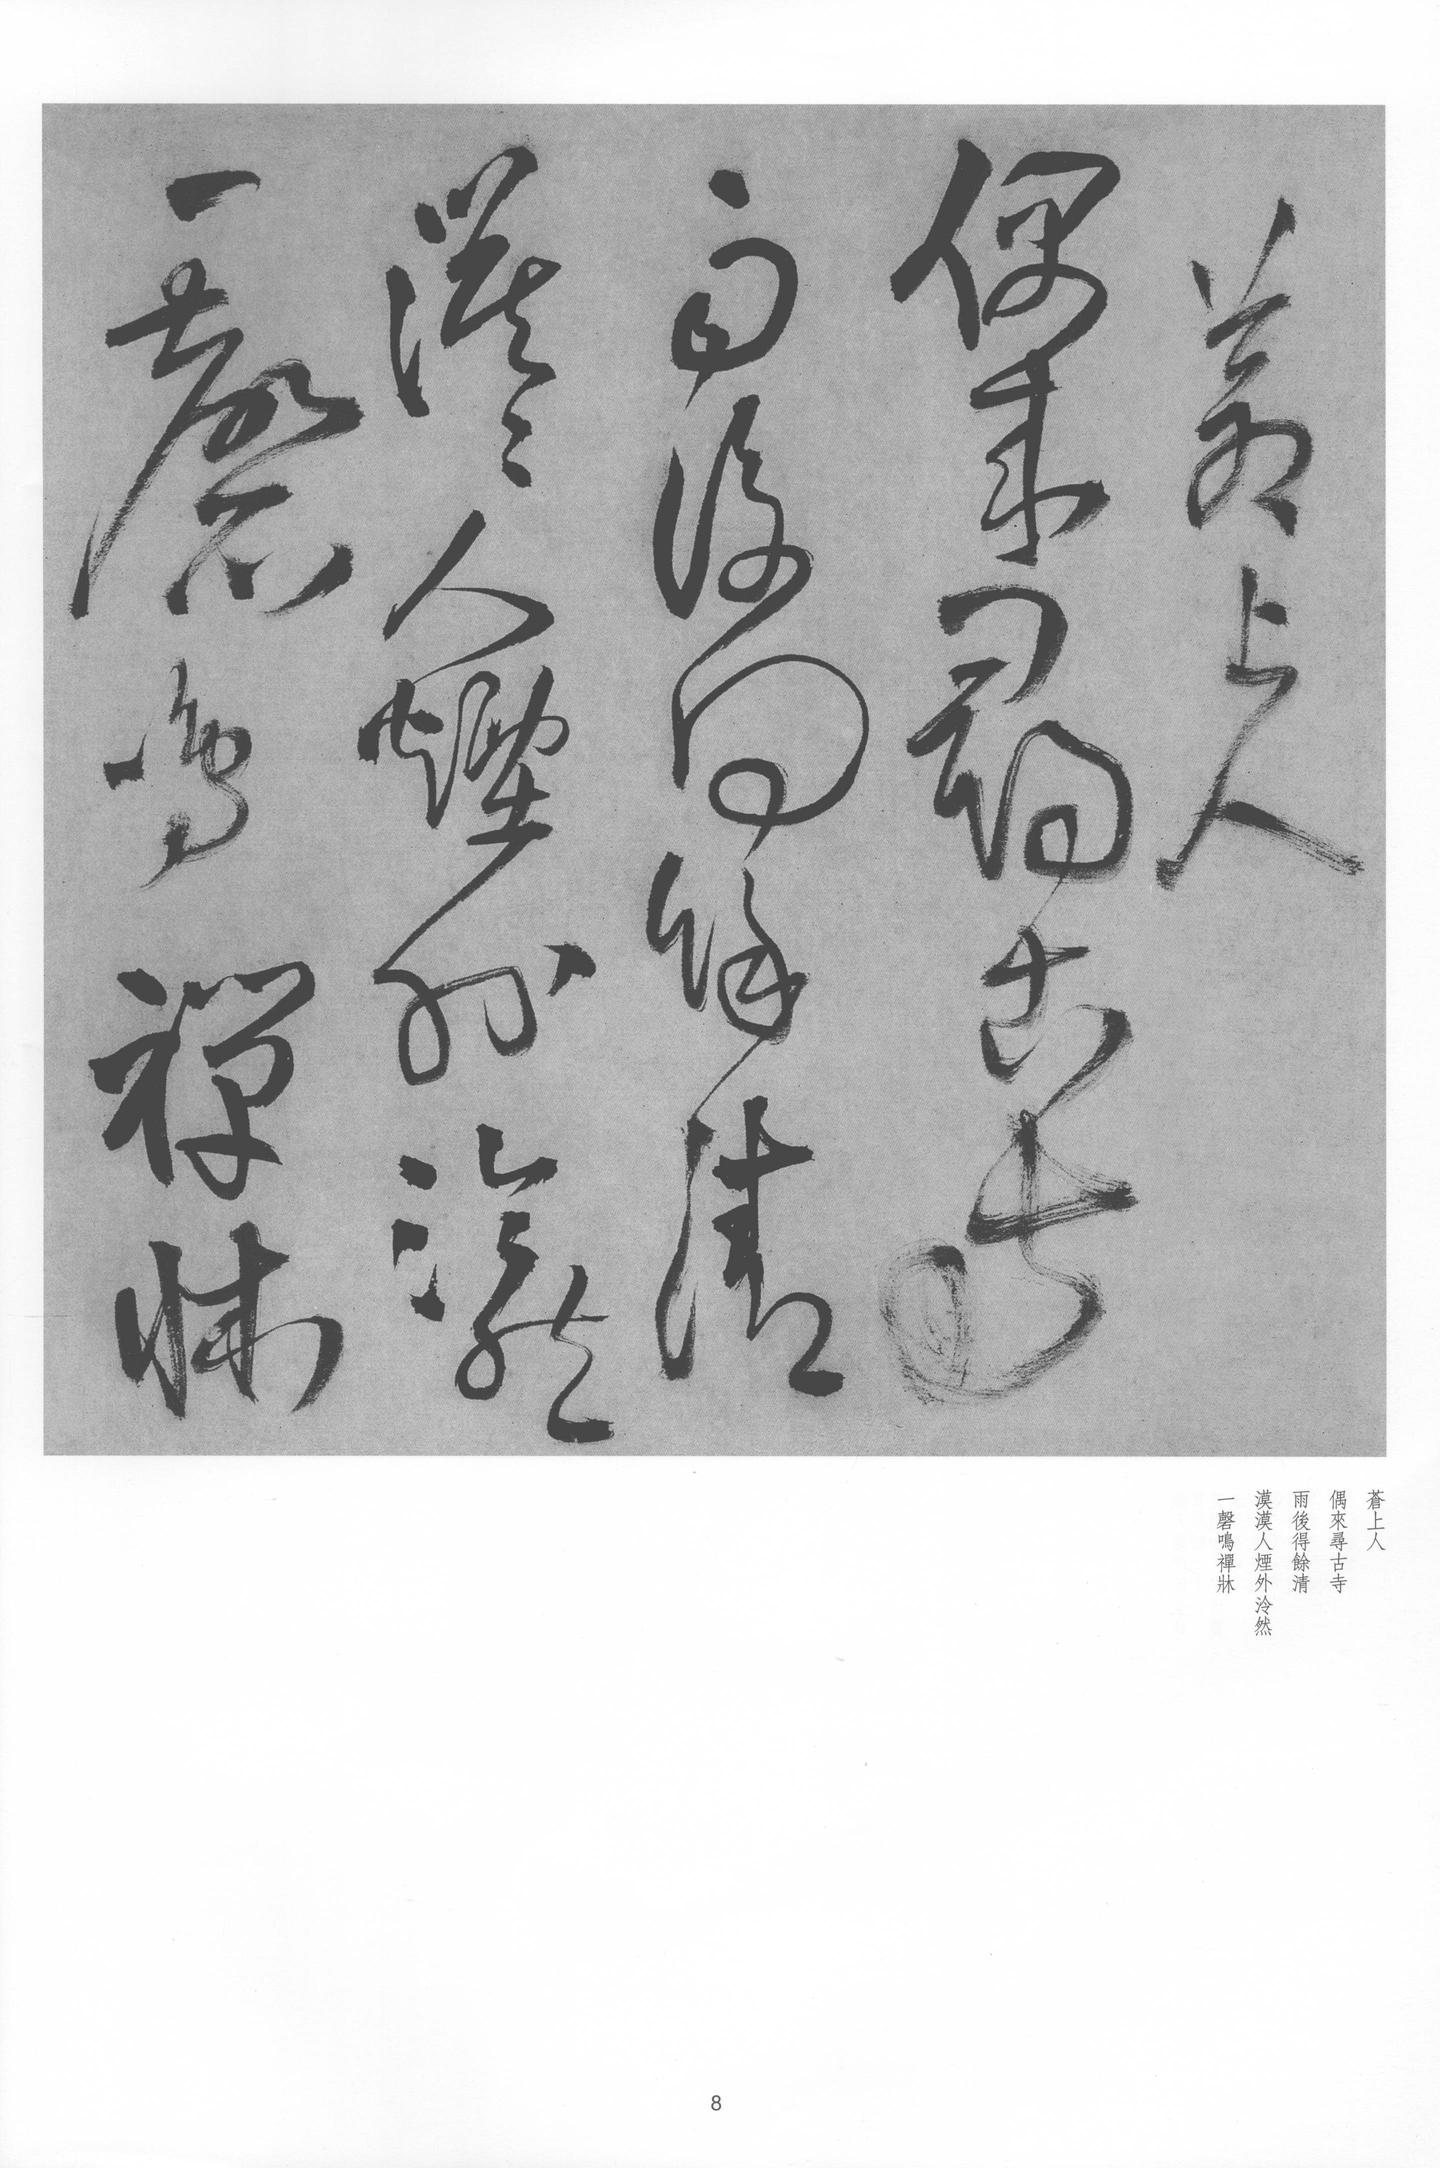 蒼上人
偶來尋古寺
雨後得餘清
漠漠人煙外泠然
一磬鳴禪牀
蒼上人
偶來尋古寺
雨後得餘清
漠漠人煙外泠然
一磬鳴禪牀
8